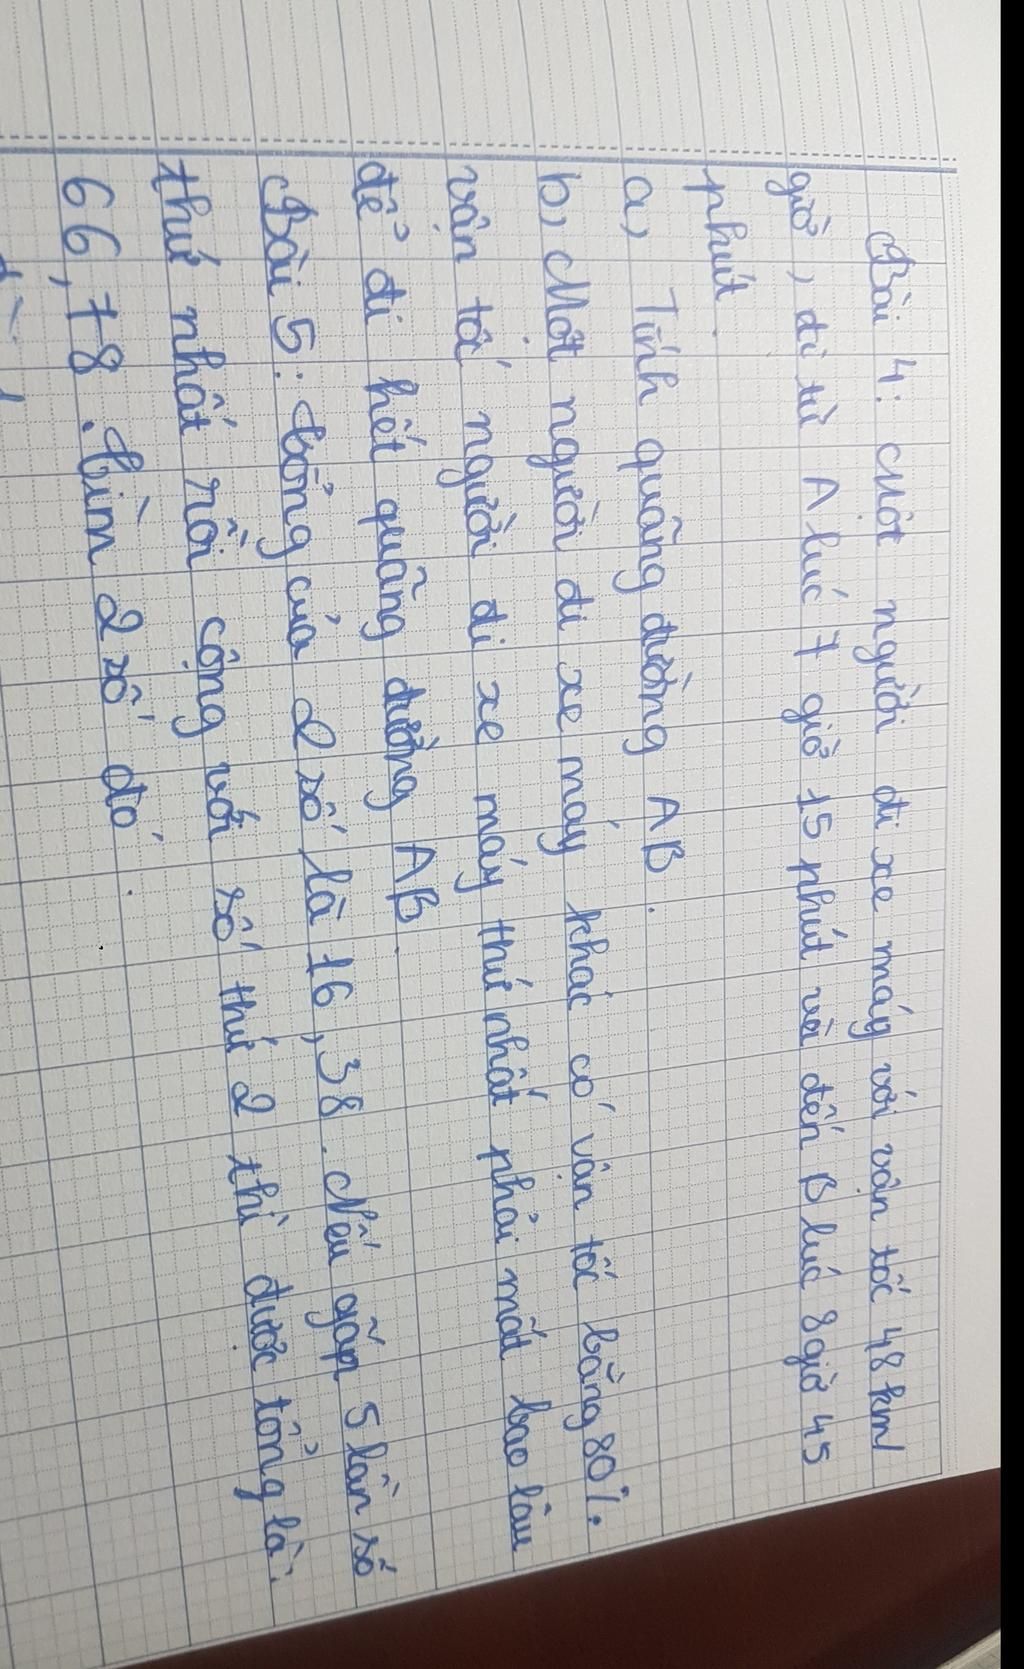 Bài 4: Một người đi xe máy với vận tốc 48 km/
giờ, đi từ A lúc 7 giờ 15 phút và đến B lúc 8 giờ 45
phút.
a, Tính quãng đường AB.
b, Một người đi xe máy khác có vận tốc bằng 80%
vận tốc người đi xe máy thứ nhất phải mất bao lâu
để đi hết quãng đường AB.
Bài 5: Tổng của 2 số là 16,38. Nếu gấp 5 lần số
thứ nhất rồi cộng với số thứ 2 thì được tổng là:
66,78. Tìm 2 số đó.